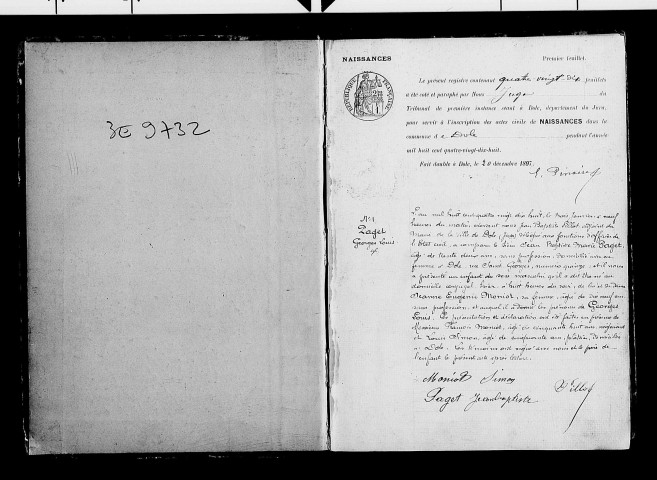 3E 9732
NAISSANCES
Premier feuillet.
RÉPUBLIQUE FRANÇAISE
Le présent registre contenant quatre vingt dix feuillets
a été coté et paraphé par Nous Juge du
Tribunal de première instance séant à Dole, département du Jura,
pour servir à l'inscription des actes civils de NAISSANCES dans la
commune d e Dole pendant l'année
mil huit cent quatre-vingt-dix-huit.
Fait double à Dole, le 20 décembre 1897.
N° 1
Paget
Georges Louis
L'an mil huit cent quatre vingt dix huit, le trois Janvier, à neuf
heures du matin, devant nous Jean Baptiste Pillot, adjoint du
Maire de la ville de Dole, (Jura) fonctions d'officier de
l'état civil, a comparu le sieur Jean Baptiste Marie Paget,
âgé de trente deux ans, sans profession, domicilié avec sa
femme à Dole, rue Saint Georges, numéro quinze, et il nous
a présenté un enfant du sexe masculin qu'il a dit être né au
domicile conjugal, hier, à huit heures du soir, de lui et de dame
Jeanne Eugénie Moniot, sa femme, âgée de neuf ans,
sans profession, et auquel il a donné les prénoms de Georges
Louis. Les présentation et déclaration ont été faites en présence de
Messieurs François Moniot, âgé de cinquante huit ans,
et Louis Simon, âgé de ans, domiciliés
à Dole. Les témoins ont signé avec nous et le père de
l'enfant le présent acte après lecture.
Moniot Simon
Paget Jean Baptiste Pillot